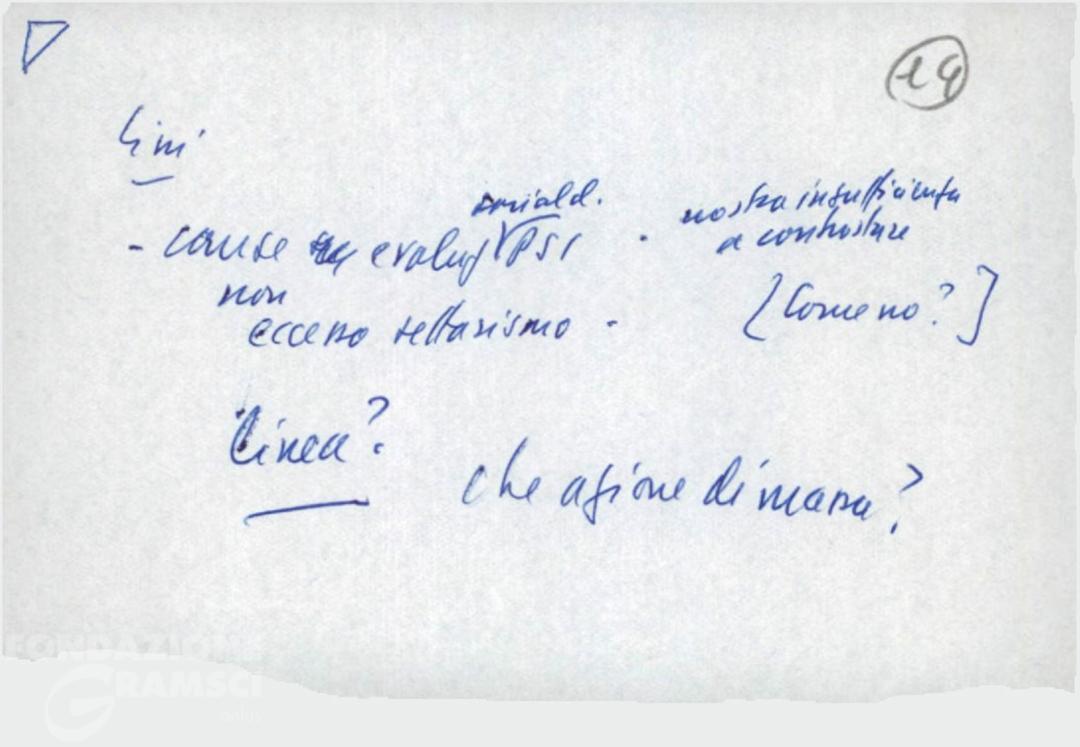 19
Lini
sociald. nostra insufficienza
- cause evoluz PSI - a contrastare
non
eccesso settarismo - [Come no?]
Linea?
che azione di massa?
FONDAZIONE
GRAMSCI
onlus